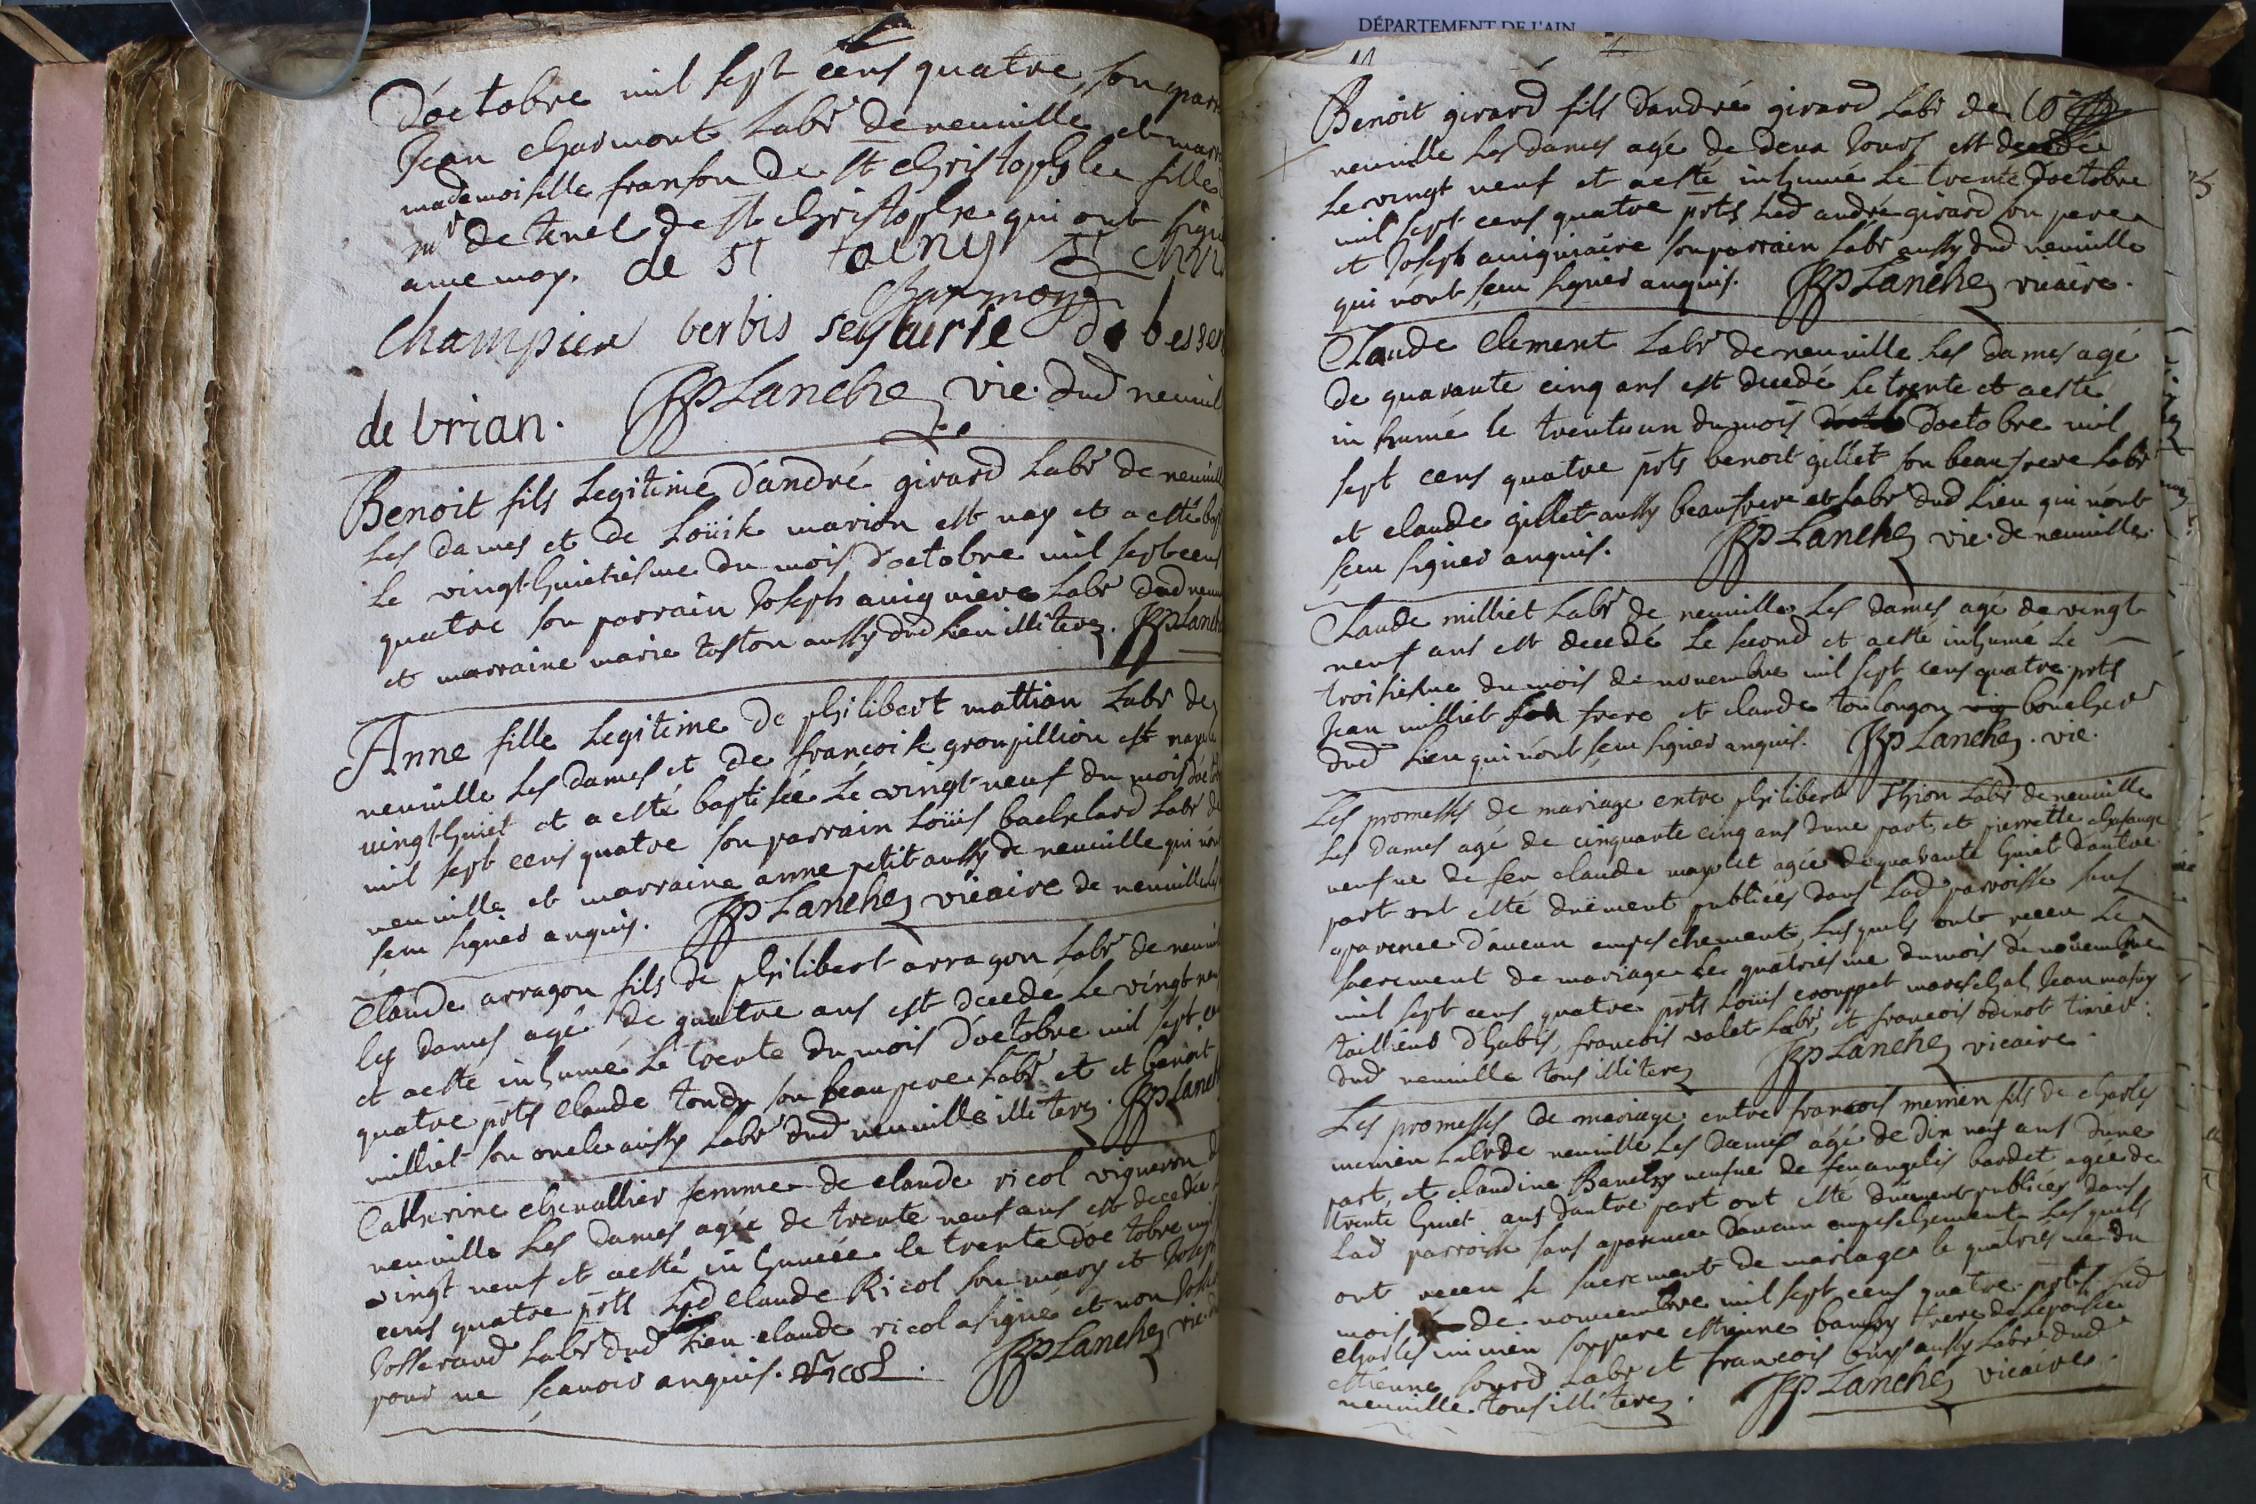 DÉPARTEMENT DE L'AIN
D'octobre mil sept cens quatre, son parr
Jean charmont Labr de neuville et marr
mademoiselle franson de st christophlee fille
mr de tenel de st christophle qui ont signé
avec moy. de st
Charmond
Champier verbis seyturie de besser
de brian. Lanchez vic. dud neuvil
Benoit fils Legitime d'andré girard Labr de neuvill
Les dames et de Loüise marion est nay et a esté bap
le vingt huictiesme du mois d'octobre mil sept cens
quatre son parrain Joseph auiguiere Labr dud neuv
et marraine marie tuston aussy dud Lieu illiterez. Lanch
Anne fille Legitime de philibert mattion Labr de
neuville Les dames et de francoise groupillion est nay le
vingt huict et a esté baptisée Le vingt neuf du mois d'octob
mil sept cens quatre son parrain Loüis bachelard Labr de
neuville et marraine anne petit aussy de neuville qui n'ont
sçeu signer anquis. Lanchez vicaire de neuville les
Claude arragon fils de philibert arragon Labr de neuvil
les dames agé de quatre ans est decedé Le vingt neu
et a esté inhumé Le trente du mois d'octobre mil sept ce
quatre pñts Claude son beaupere Labr et et benoit
milliet son oncle aussy Labr dud neuville illiterez. Lanch
Catherine chevallier femme de claude ricol vigneron d
neuville Les dames agée de trente neuf ans est decedée
vingt neuf et a esté inhumée le trente d'octobre mil
cens quatre pñts Led claude Ricol son mary et Joseph
Josserand Labr dud Lieu claude ricol a signé et non Joss
pour ne sçavoir anquis. Ricol. Lanchez vic. d
Benoit girard fils d'andré girard Labr de
neuville Les dames agé de deux Jours est decedé
Le vingt neuf et a esté inhumé Le trente d'octobre
mil sept cens quatre pñts Led andré girard son pere
et Joseph auiguiaire son parrain Labr aussy dud neuville
qui n'ont sçeu signer anquis. Lanchez vicaire.
Claude Clement Labr de neuville Les dames agé
de quarante cinq ans est decedé Le trente et a esté
inhumé le trente un du mois d'octobre mil
sept cens quatre pñts benoit gillet son beaufrere Labr
et claude gillet aussy beaufrere et Labr dud Lieu qui n'ont
sçeu signer anquis. Lanchez vic. de neuville.
Claude milliet Labr de neuville Les dames agé de vingt
neuf ans est decedé Le second et a esté inhumé Le
troisiesme du mois de novembre mil sept cens quatre pñts
Jean milliet son frere et claude toulongon boucher
dud Lieu qui n'ont sçeu signer anquis. Lanchez. vic.
Les promesses de mariage entre philibert Thion Labr de neuville
Les dames agé de cinquante cinq ans d'une part, et pierrette
veufve de feu claude agée de quarante huict d'autre
part ont esté düement publiées dans Lad parroisse sans
aparence d'aucun empeschement, Lesquels ont receu Le
sacrement de mariage Le quatriesme du mois de novembre
mil sept cens quatre pñts Loüis crouppet mareschal, Jean
taillieur d'habis, francois valet Labr, et francois odinot tixier
dud neuville tous illiterez Lanchez vicaire.
Les promesses de mariage entre francois fils de charles
Labr de neuville Les Dames agé de dix neuf ans d'une
part, et claudine veufve de feu angelis bardet agée de
trente huict ans d'autre part ont esté düement publiées dans
Lad parroisse sans aparence d'aucun empeschement Lesquels
ont receu le sacrement de mariage le quatriesme du
mois de novembre mil sept cens quatre pñts Led
charles son pere estienne frere de Lespousée
estienne sourd Labr et francois buys aussy Labr dud
neuville tous illiterez. Lanchez vicaire.